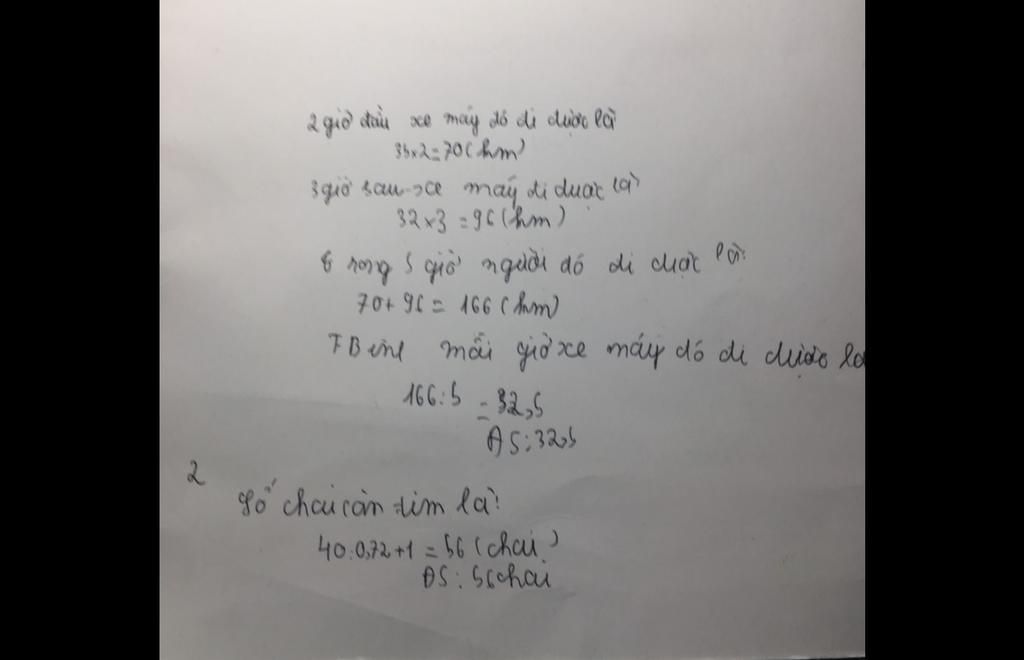 2 giờ đầu xe máy đó đi được là
35×2=70(km)
3 giờ sau xe máy đi được là
32×3=96(km)
Trong 5 giờ người đó đi được là:
70+96=166(km)
TB mỗi giờ xe máy đó đi được là
166:5=32,5
ĐS:32,5
2
Số chai cần tìm là:
40:0,72+1=56(chai)
ĐS:56chai